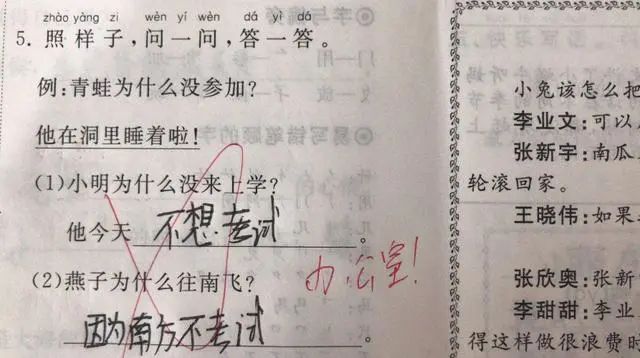 zhào yàng zi wèn yí wèn dá yì dá
5. 照样子，问一问，答一答。
例：青蛙为什么没参加？
他在洞里睡着啦！
(1)小明为什么没来上学？
他今天 不想考试 。
(2)燕子为什么往南飞？
办公室！
因为南方不考试 。
小兔该怎么把
李业文：可以
张新宇：南瓜
轮滚回家。
王晓伟：如果
张欣奥：张新
李甜甜：李业
得这样做很浪费时